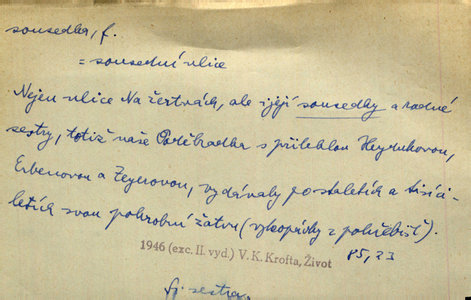 sousedka, f.
= sousední ulice
Nejen ulice Na žertvách, ale i její sousedky a rodné
sestry, totiž naše Poděbradka s přilehlou Heydukovou,
Erbenovou a Zeyerovou, vydávaly po staletích a tisíci-
letích svou pohrobní žatvu (vykopávky z pohřebišť).
85, 23
1946 (exc. II. vyd.) V. K. Krofta, Život
sestra